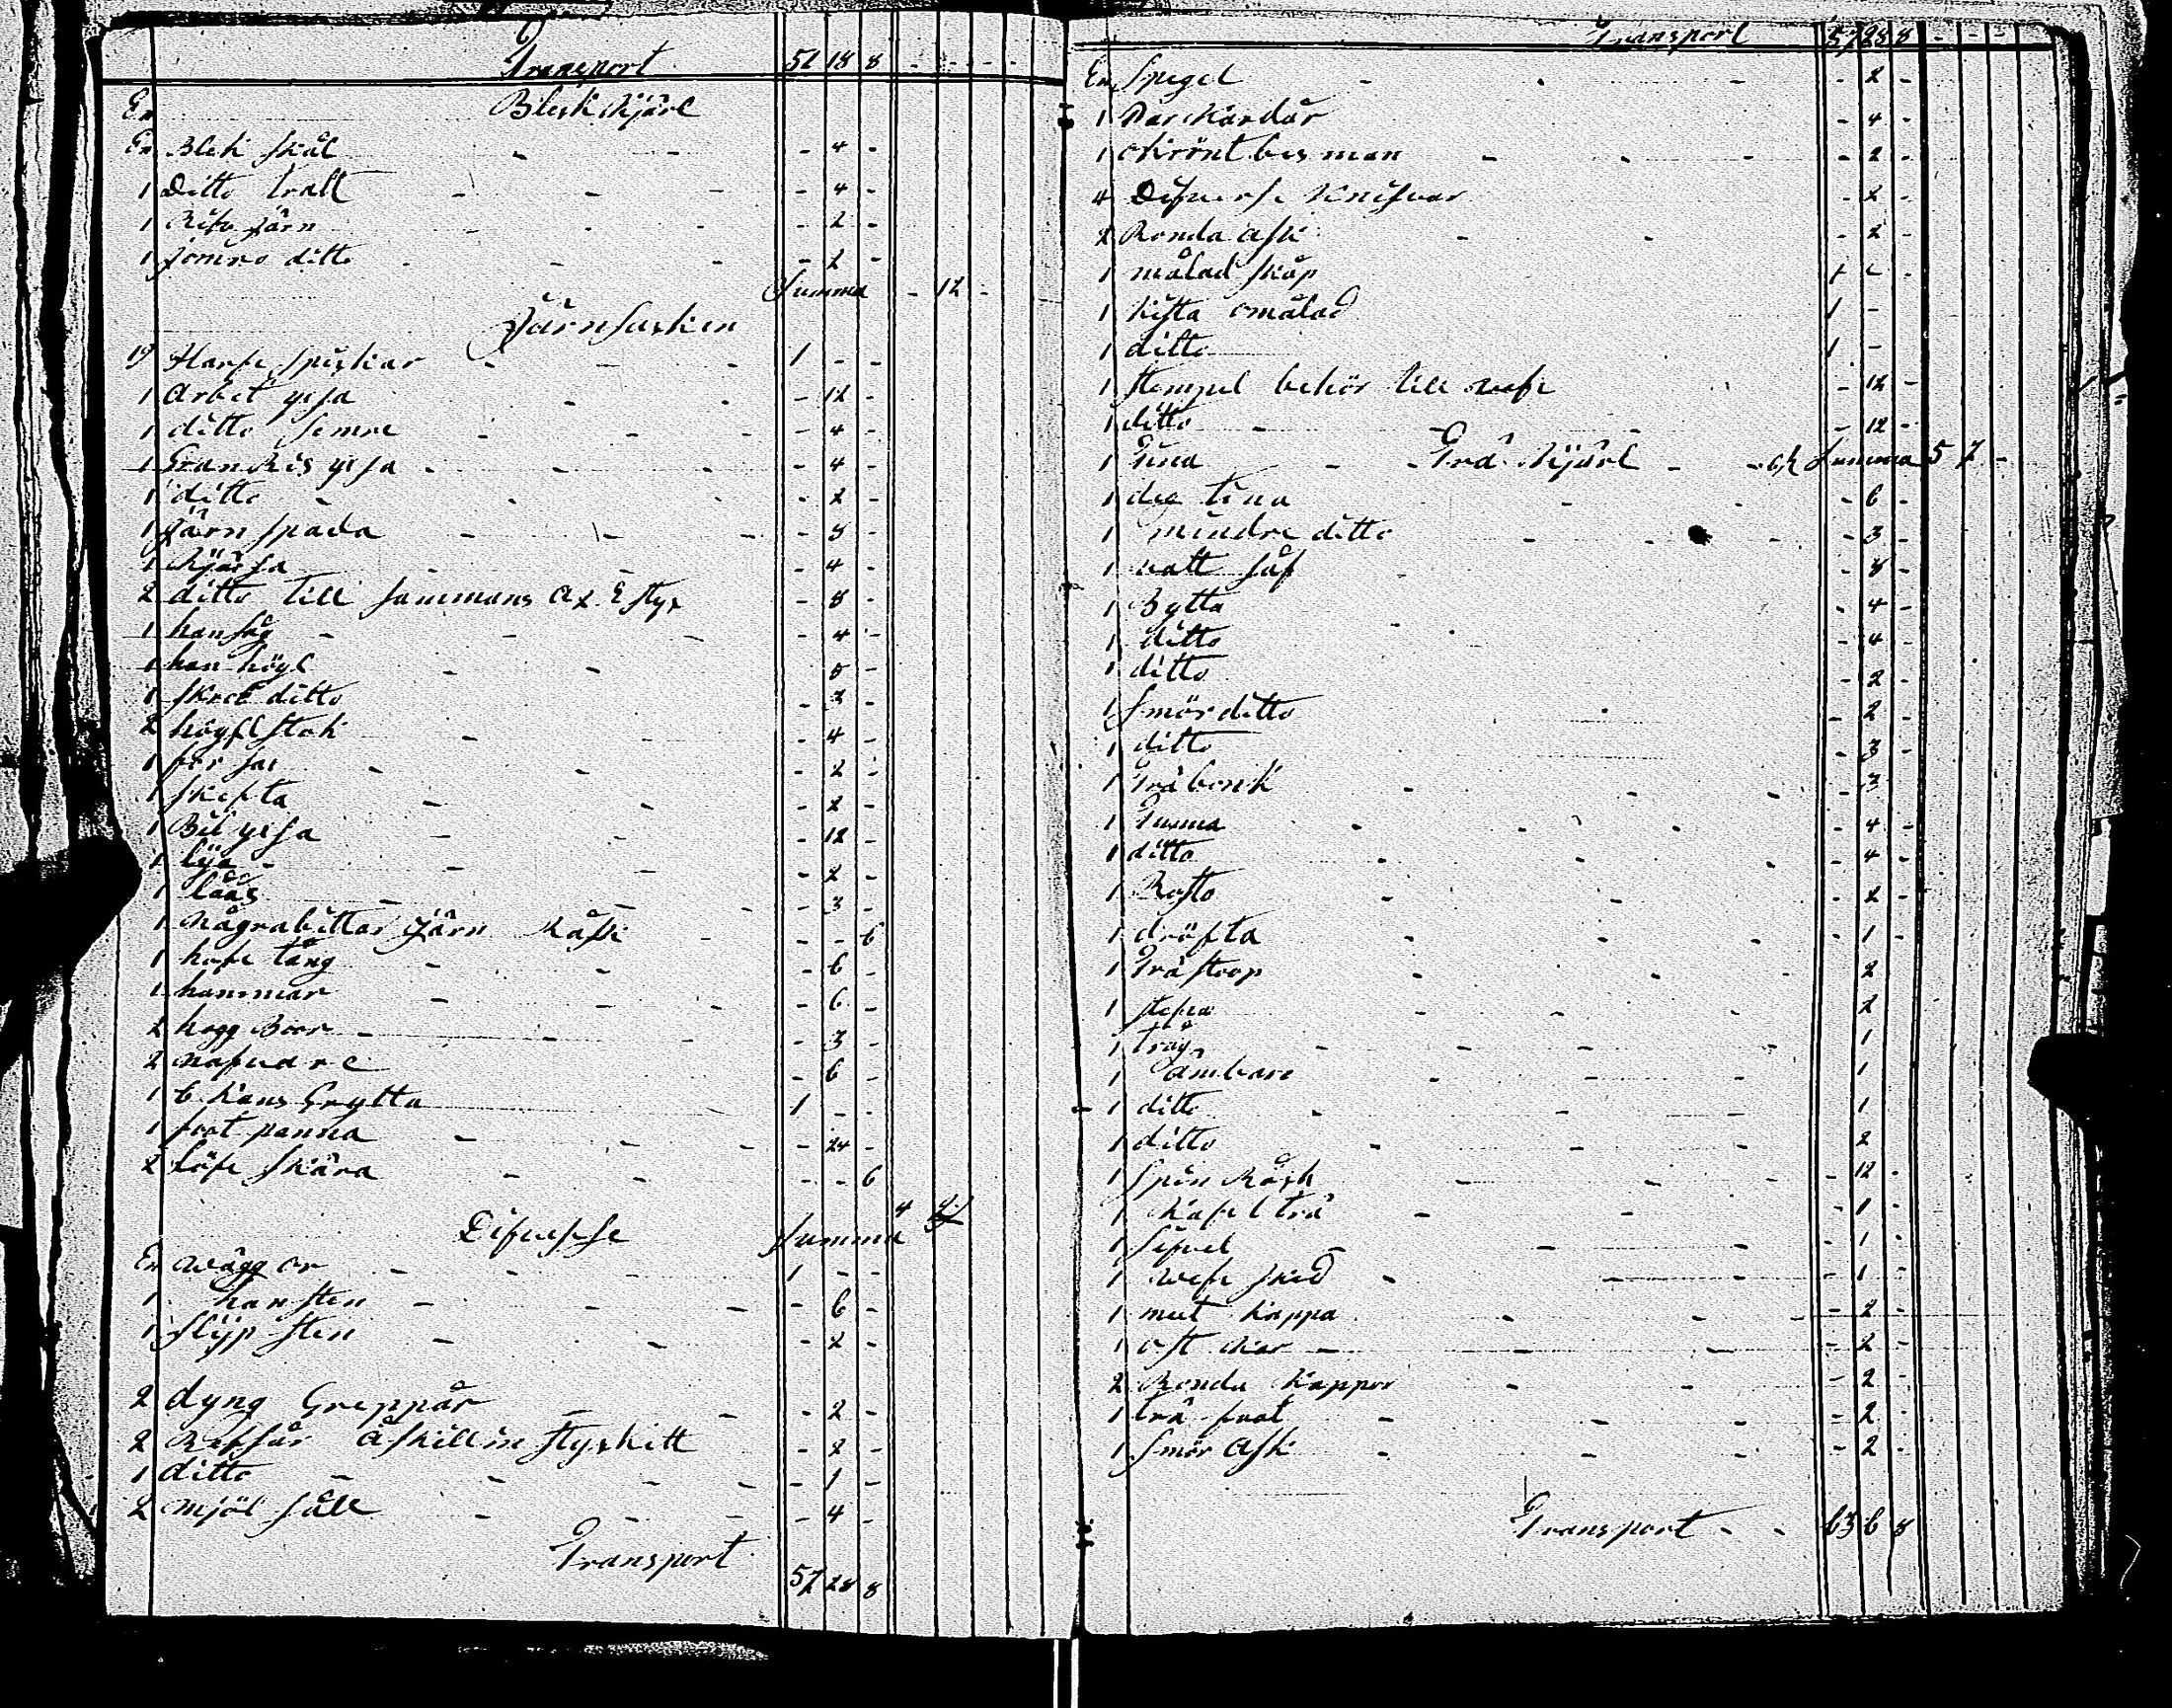 Transport 52 18 8 - - - -
En Bleck Kjärl
En Bleck skål - - - 4 -
1 Ditto tratt - - - - 4 -
1 Rifv järn - - - - 2 -
1 ditto - - - - 2 -
Summa - 12 -
Järnsasken
19 Harfv piskar - - 1 - -
1 Arbet yxsa - - - 12 -
1 ditto semre - - - - 4 -
1 Granris yxsa - - - - 4 -
1 ditto - - - - 2 -
1 Järn spada - - - - 8 -
1 - - - - 4 -
2 ditto till sammans - 8 -
1 han såg - - - - 4 -
1 han högl - - - 5 -
1 skrot ditto - 3 -
2 högfl stok - - - 4 -
1 - - - 2 -
1 skifta - - - 2 -
1 Bil yxsa - - - 12 -
1 lÿa - - - 2 -
1 låås - - - 3 -
1 någrabittar Järn - - 6
1 hofv tång - - - 6 -
1 hammar - - - 6 -
2 hogg Boor - - - - 3 -
2 nafvare - 6 -
1 6 Kans Grytta 1 - -
1 foot panna - - - - 24 -
2 löfv skära - - - - 6
4
Difversse Summa
En wägg or - - - 1 - -
1 han sten - - - - 6 -
1 slÿp sten - - - 2 -
2 dyng Greppår - - - 2 -
2 å skillin styckitt - 2 -
1 ditto - - - - - 1 -
2 mjöl såll - - - - 4 -
Transport 57 28 8
Transport 57 28 8 - - -
En Spegel - - - - 2 -
1 Par Kardår - 4 -
1 Krönt besman - - - - 2 -
4 Difverse Knifvar - 2 -
2 Ronda ask - - - 2 -
1 målad skåp 1 - -
1 kista omålad 1 -
1 ditto 1 -
1 stempel behör till - 12 -
1 ditto - - - 12 -
1 Tina - - Trä Kjärl - Summa 5 7 -
1 deg tina - - - 6 -
1 mindre ditto - - - - 3 -
1 natt - - 8 -
1 Bytta - 4 -
1 ditto - 4 -
1 ditto - 2 -
1 smör ditto - 2 -
1 ditto - 3 -
1 Träbonk - - - - 3 -
1 Tunna - - - - - 4 -
1 ditto - - - - 4 -
1 - - - 2 -
1 dröfta - - - - 1 -
1 Trä stoop - - - 2
1 stefva - - - 2
1 tråg - - - - 1
1 ämbare - - - 1
1 ditto - - - 1
1 ditto - - - 2
1 Spin Råck - - - - 12 -
1 Kafvel trä - - - - 1 -
1 - - - 1 -
1 wefv sked - - - - 1 -
1 mut kappa - - - - 2 -
1 ost kar - - - - 2 -
2 Ronda kappor - - - 2 -
1 trä foot - - - - 2 -
1 smör ask - - - - 2 -
Transport - - 63 6 8